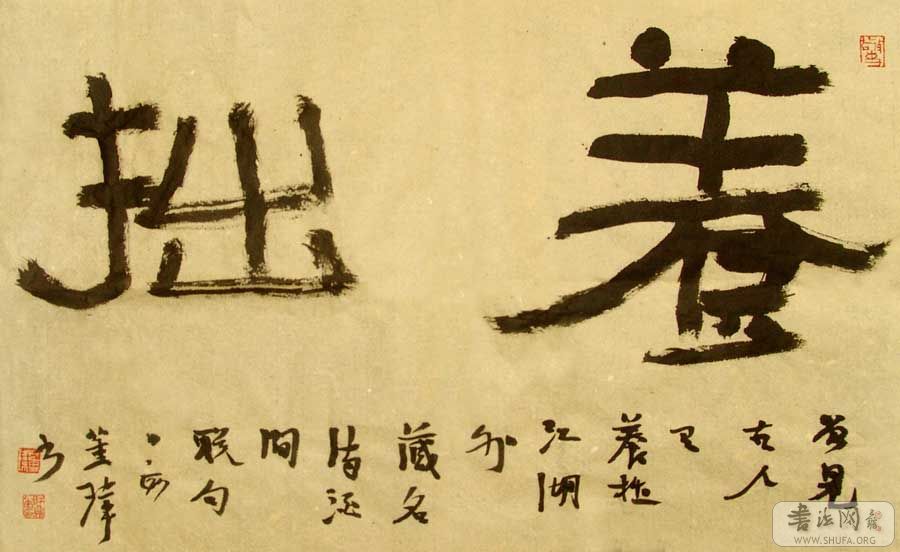 養拙
曾見
古人
養拙
江湖
外
藏名
詩酒
間
聯句
丁亥
書
書法網
WWW.SHUFA.ORG